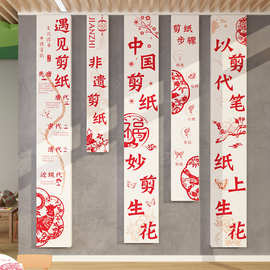 遇见剪纸
唐代
清代
近现代
JIANZHI
非遗剪纸
中国剪纸
妙剪生花
剪纸
步骤
以剪代笔
纸上生花